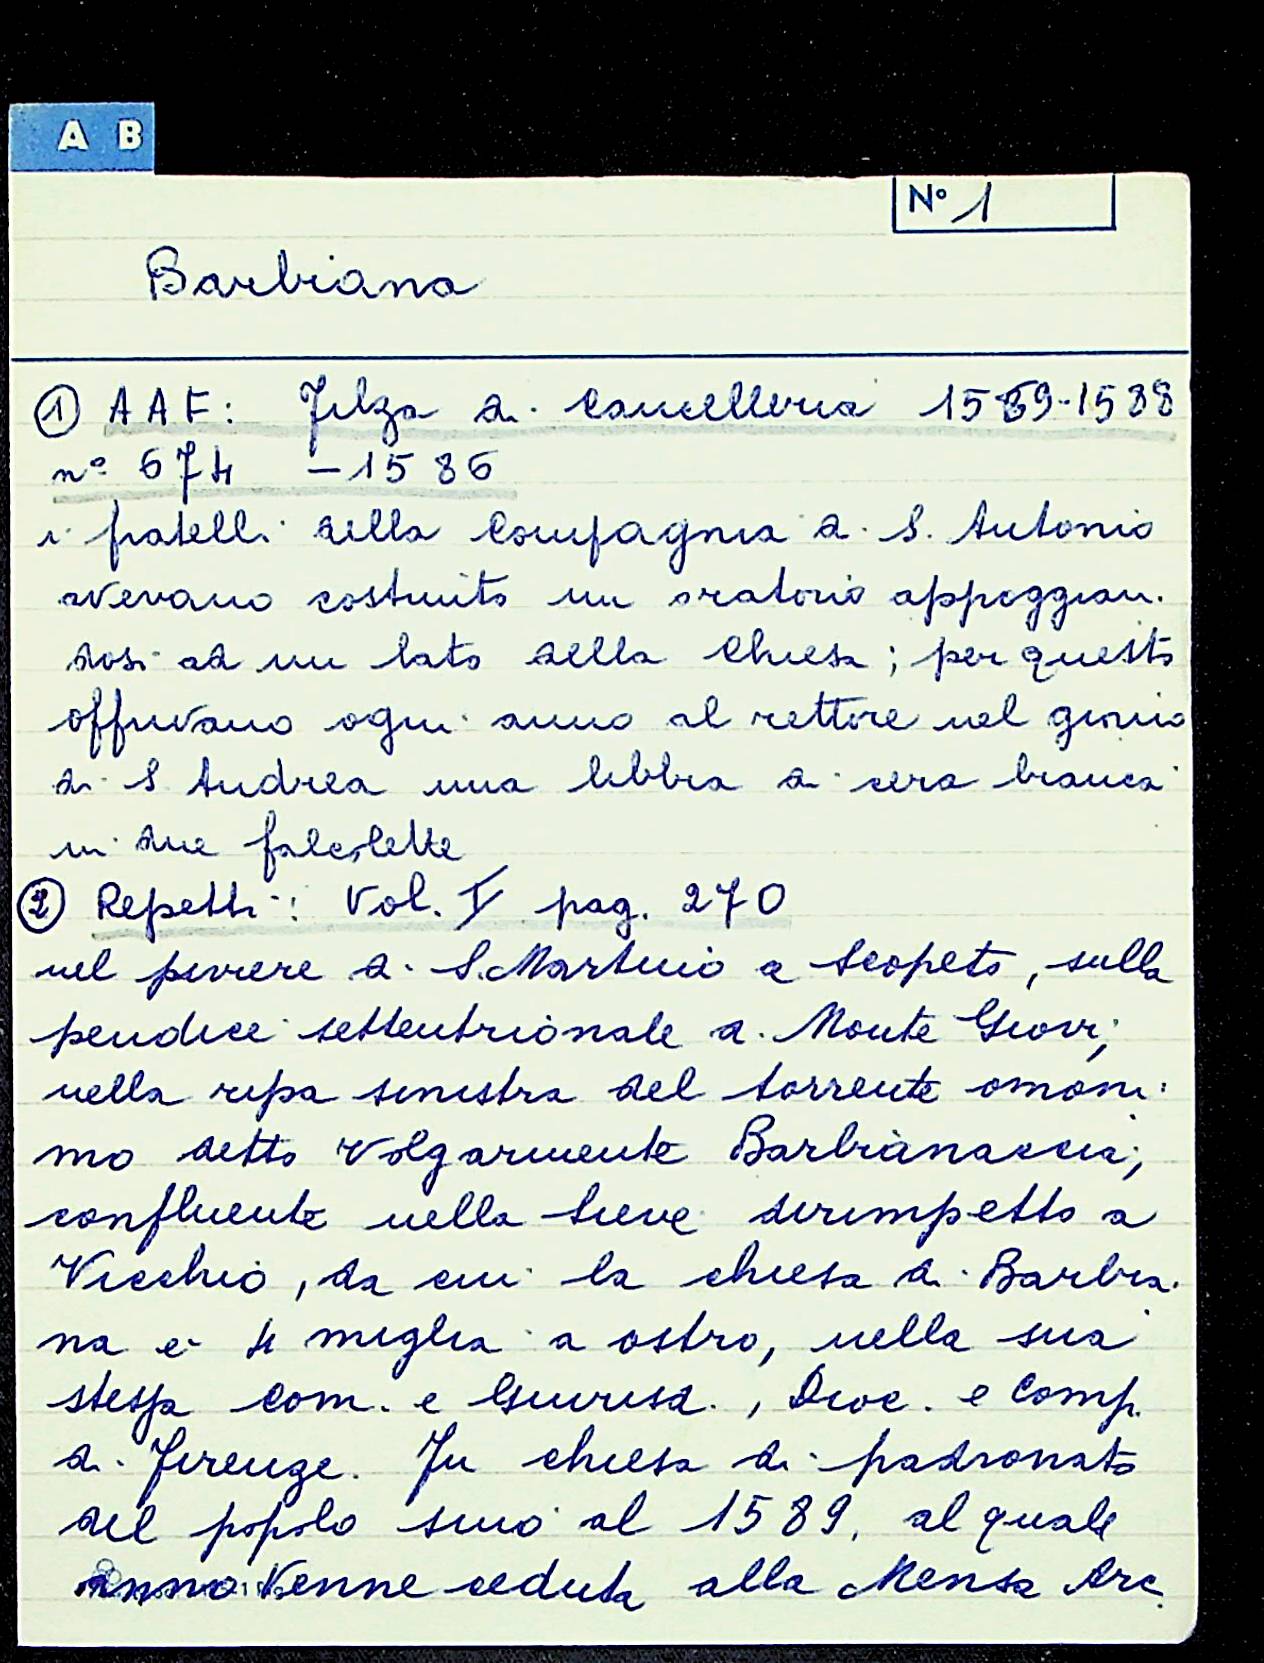 A B
Nº 1
Barbiana
① AAF: Filza di Cancelleria 1569-1588
nº 674 - 1586
i fratelli della Compagnia di S. Antonio
avevano costruito un oratorio appoggian-
dosi ad un lato della Chiesa; per questo
offrivano ogni anno al rettore nel giorno
di S. Andrea una libbra di cera bianca
in due falcolette
② Repetti: Vol. I pag. 270
nel piviere di S. Martino a Scopeto, sulla
pendice settentrionale di Monte Giovi,
nella ripa sinistra del torrente omoni-
mo detto volgarmente Barbianaccia;
confluente nella Sieve dirimpetto a
Vicchio, da cui la chiesa di Barbia-
na è 4 miglia a ostro, nella sua
stessa com. e Giurisd., Dioc. e Comp.
di Firenze. Fu chiesa di padronato
del popolo sino al 1589, al quale
anno venne ceduta alla Mensa Arc.